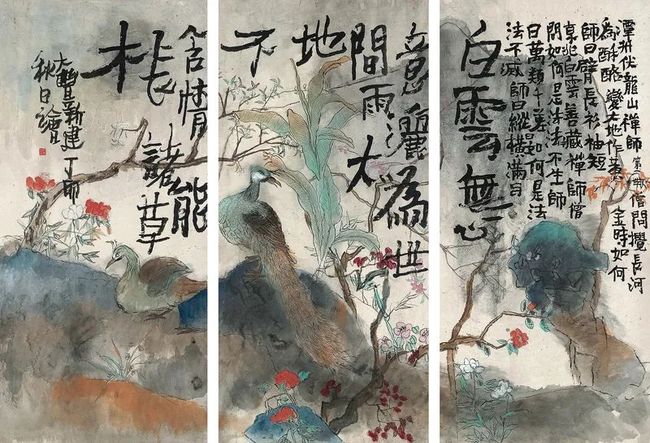 潭州伏龍山禪師第一世僧問攪長河
為酥酪變大地作黃金時如何
師曰臂長衫袖短
京兆白雲善藏禪師僧
問如何是法法不生師
曰萬類千差如何是法
法不滅師曰縱橫滿目
白雲無心
意灑為世
間雨大
地
不
含情能
長諸草
木
新建丁酉
秋日繪